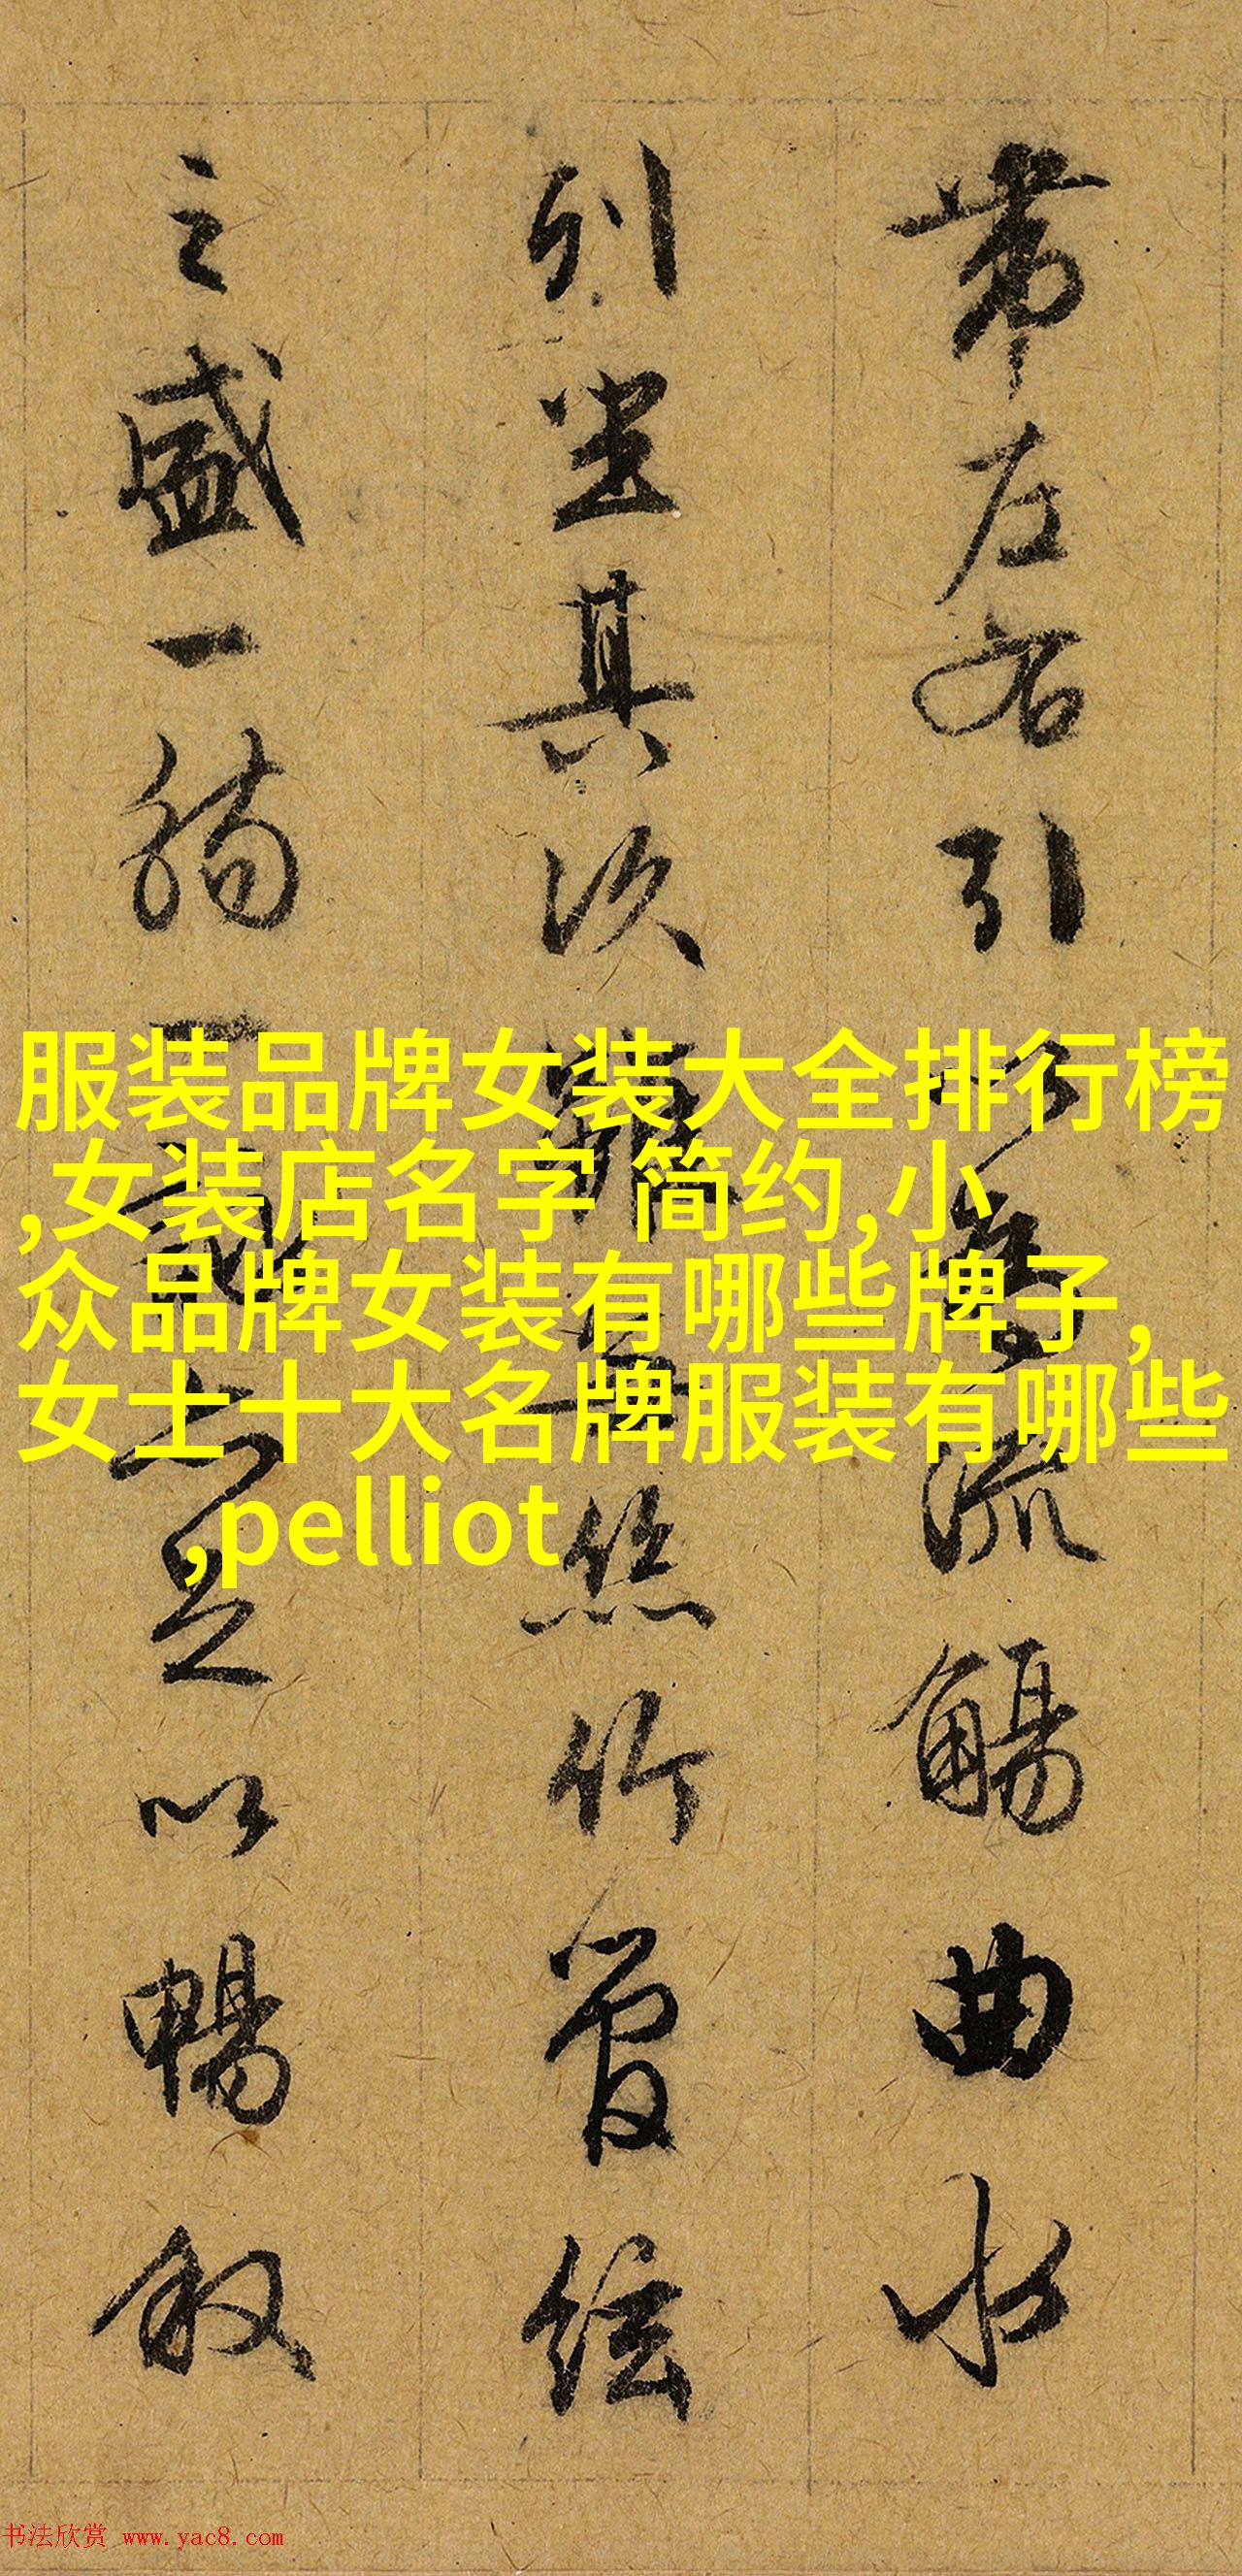 帶左右引以為流觴曲水
列坐其次雖無絲竹管絃
之盛一觴一詠亦足以暢敘
服装品牌女装大全排行榜
,女装店名字 简约,小
众品牌女装有哪些牌子,
女士十大名牌服装有哪些
,pelliot
书法欣赏 www.yac8.com